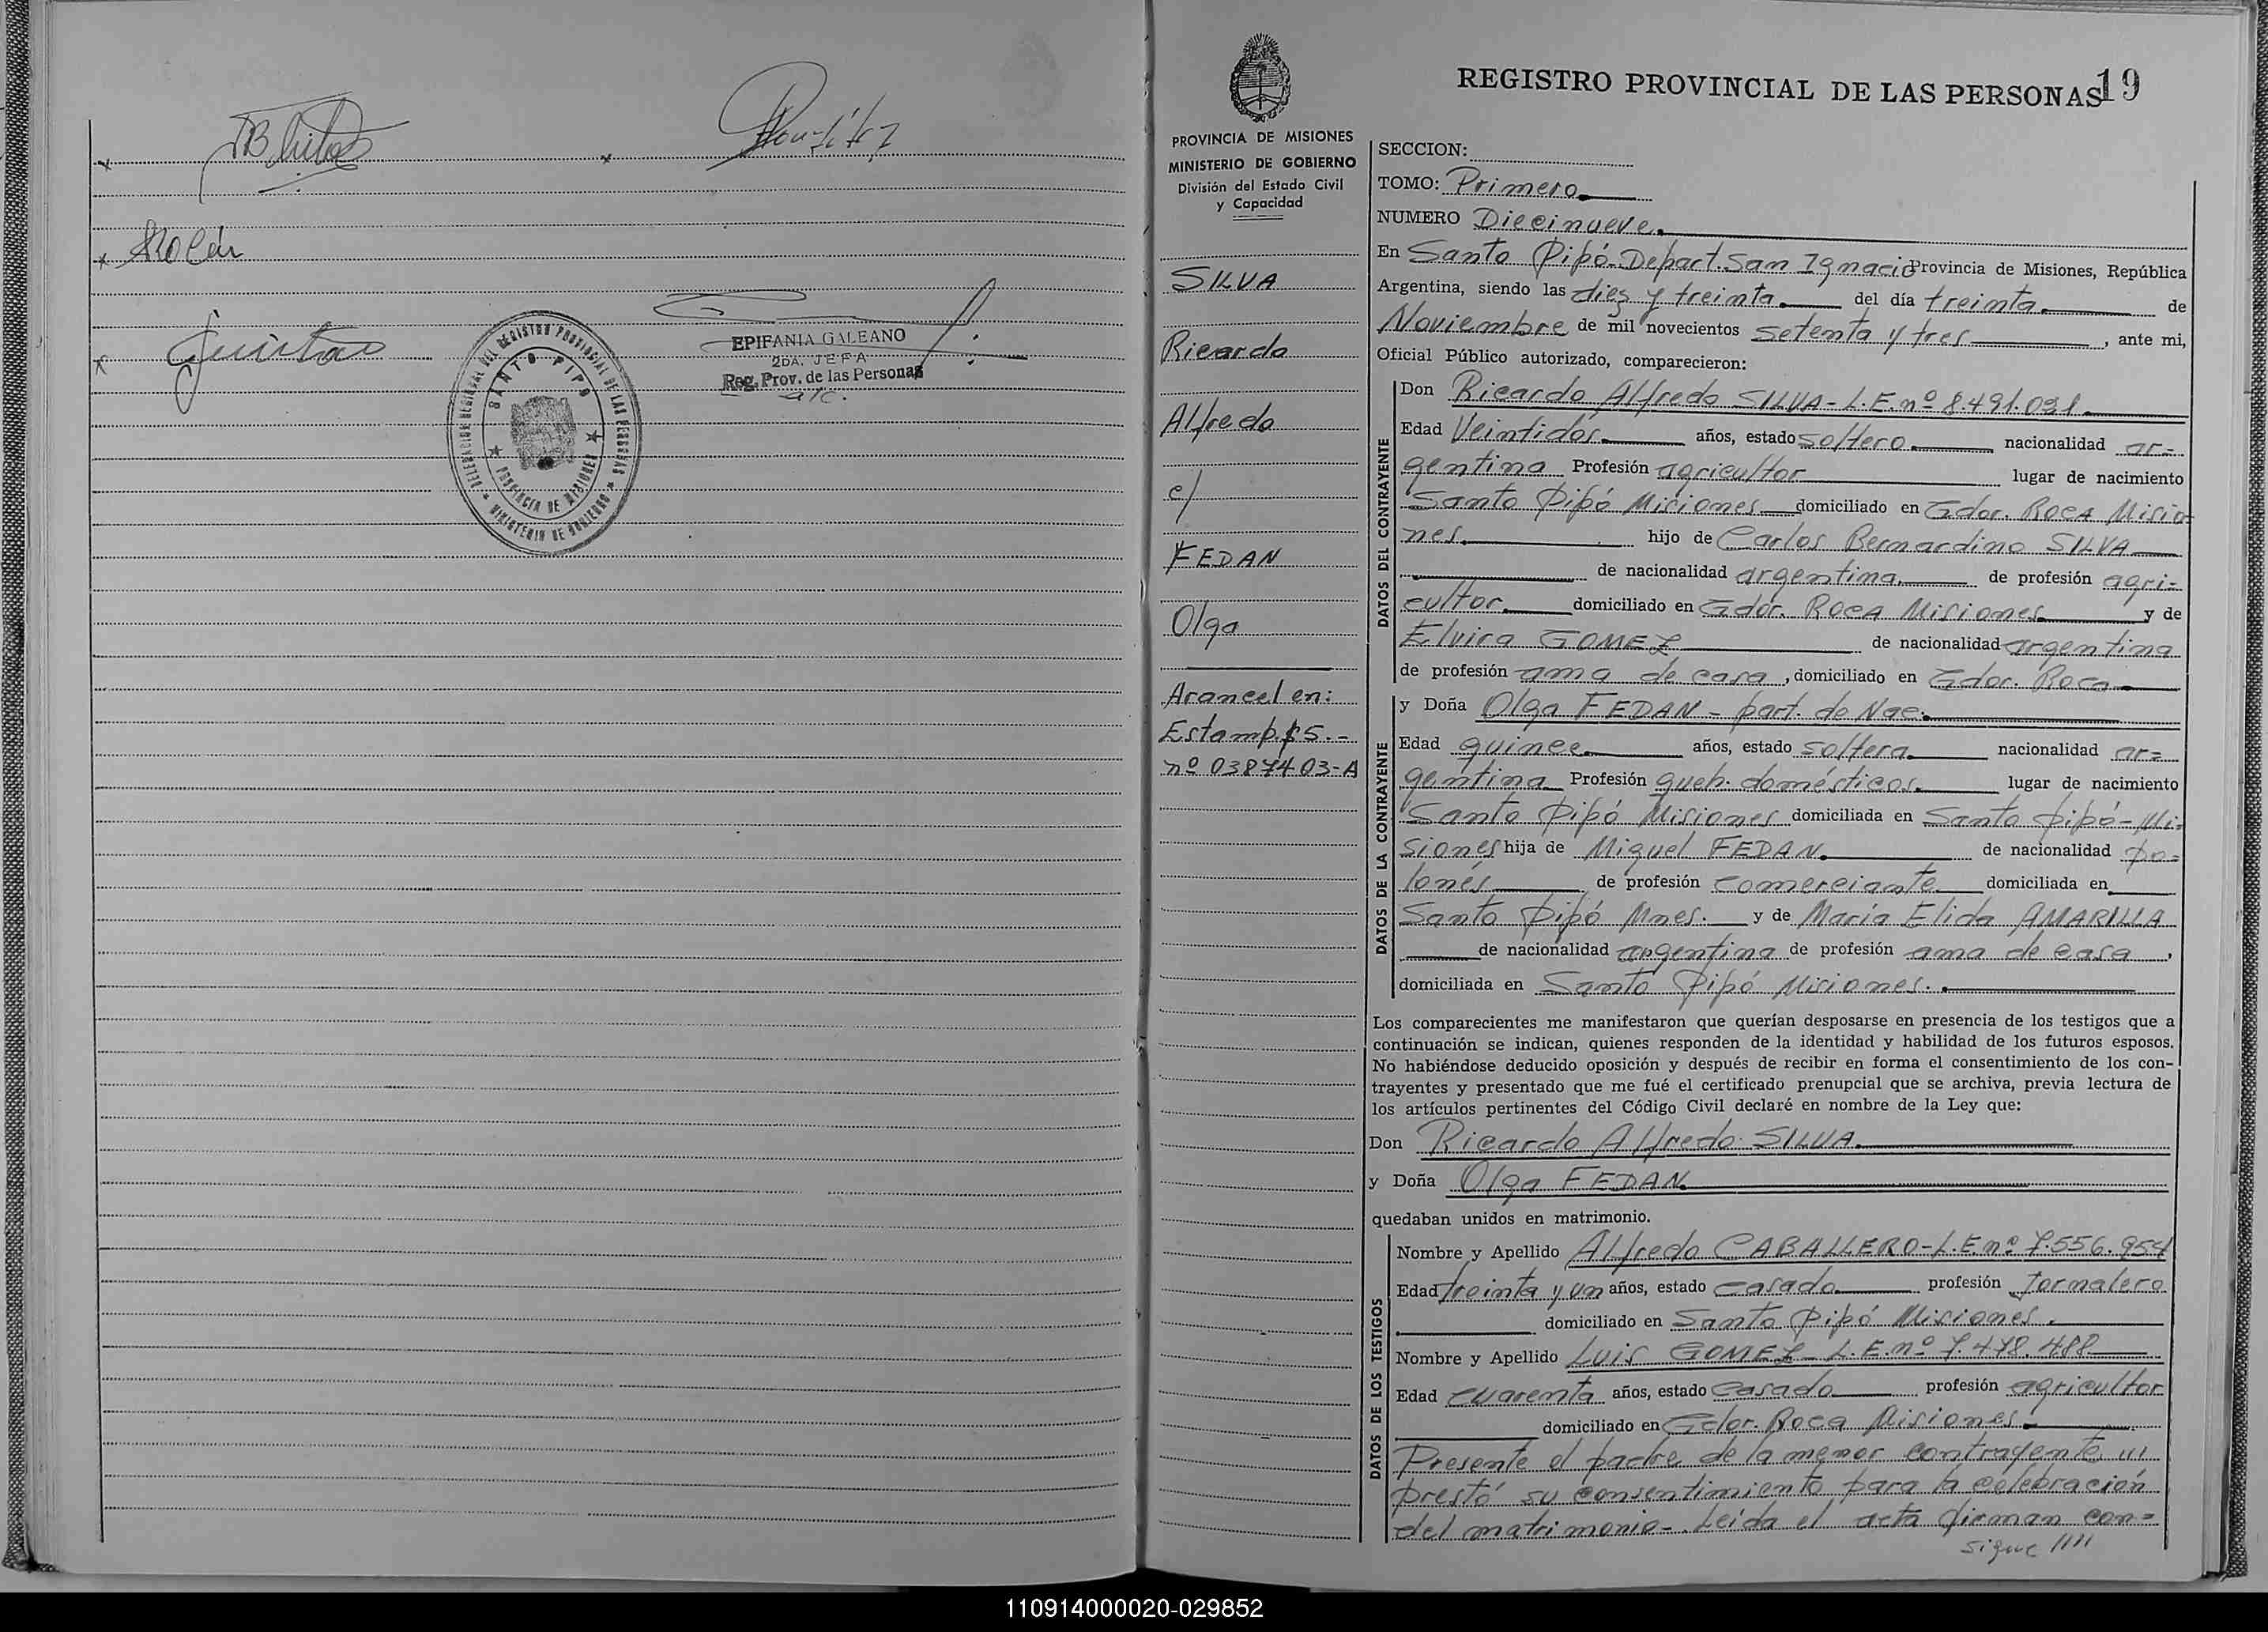 EPIFANIA GALEANO
2DA. JEFA
Reg. Prov. de las Personas
a/c.
DELEGACION REGIONAL DEL REGISTRO PROVINCIAL DE LAS PERSONAS
SANTO PIPO
PROVINCIA DE MISIONES
MINISTERIO DE GOBIERNO
PROVINCIA DE MISIONES
MINISTERIO DE GOBIERNO
División del Estado Civil
y Capacidad
SILVA
Ricardo
Alfredo
c/
FEDAN
Olga
Arancel en:
Estamp. $5.-
nº 0387403-A
REGISTRO PROVINCIAL DE LAS PERSONAS 19
SECCION:
TOMO: Primero
NUMERO Diecinueve.
En Santo Pipó-Depart. San Ignacio Provincia de Misiones, República
Argentina, siendo las diez y treinta del día treinta de
Noviembre de mil novecientos setenta y tres, ante mi,
Oficial Público autorizado, comparecieron:
DATOS DEL CONTRAYENTE
Don Ricardo Alfredo SILVA - L.E. nº 8.491.031
Edad Veintidos años, estado soltero nacionalidad ar=
gentina Profesión agricultor lugar de nacimiento
Santo Pipó Misiones domiciliado en Gdor. ROCA Misio=
nes. hijo de Carlos Bernardino SILVA
de nacionalidad argentina. de profesión agri=
cultor. domiciliado en Gdor. ROCA Misiones y de
Elvira GOMEZ de nacionalidad argentina
de profesión ama de casa, domiciliado en Gdor. Roca
DATOS DE LA CONTRAYENTE
y Doña Olga FEDAN - part. de Nac.
Edad quince años, estado soltera nacionalidad ar=
gentina Profesión queh. domésticos. lugar de nacimiento
Santo Pipó Misiones domiciliada en Santo Pipó-Mi=
siones hija de Miguel FEDAN. de nacionalidad po=
lonés de profesión comerciante domiciliada en
Santo Pipó Mnes. y de María Elida AMARILLA
de nacionalidad argentina de profesión ama de casa,
domiciliada en Santo Pipó Misiones.
Los comparecientes me manifestaron que querían desposarse en presencia de los testigos que a
continuación se indican, quienes responden de la identidad y habilidad de los futuros esposos.
No habiéndose deducido oposición y después de recibir en forma el consentimiento de los con-
trayentes y presentado que me fué el certificado prenupcial que se archiva, previa lectura de
los artículos pertinentes del Código Civil declaré en nombre de la Ley que:
Don Ricardo Alfredo SILVA
y Doña Olga FEDAN.
quedaban unidos en matrimonio.
DATOS DE LOS TESTIGOS
Nombre y Apellido Alfredo CABALLERO - L.E. nº 7.556.954
Edad treinta y un años, estado casado profesión jornalero
domiciliado en Santo Pipó Misiones.
Nombre y Apellido Luis GOMEZ - L.E. nº 7.478.488
Edad cuarenta años, estado casado profesión agricultor
domiciliado en Gdor. Roca Misiones
Presente el padre de la menor contrayente
prestó su consentimiento para la celebración
del matrimonio - Leida el acta firman con=
sigue ////
110914000020-029852